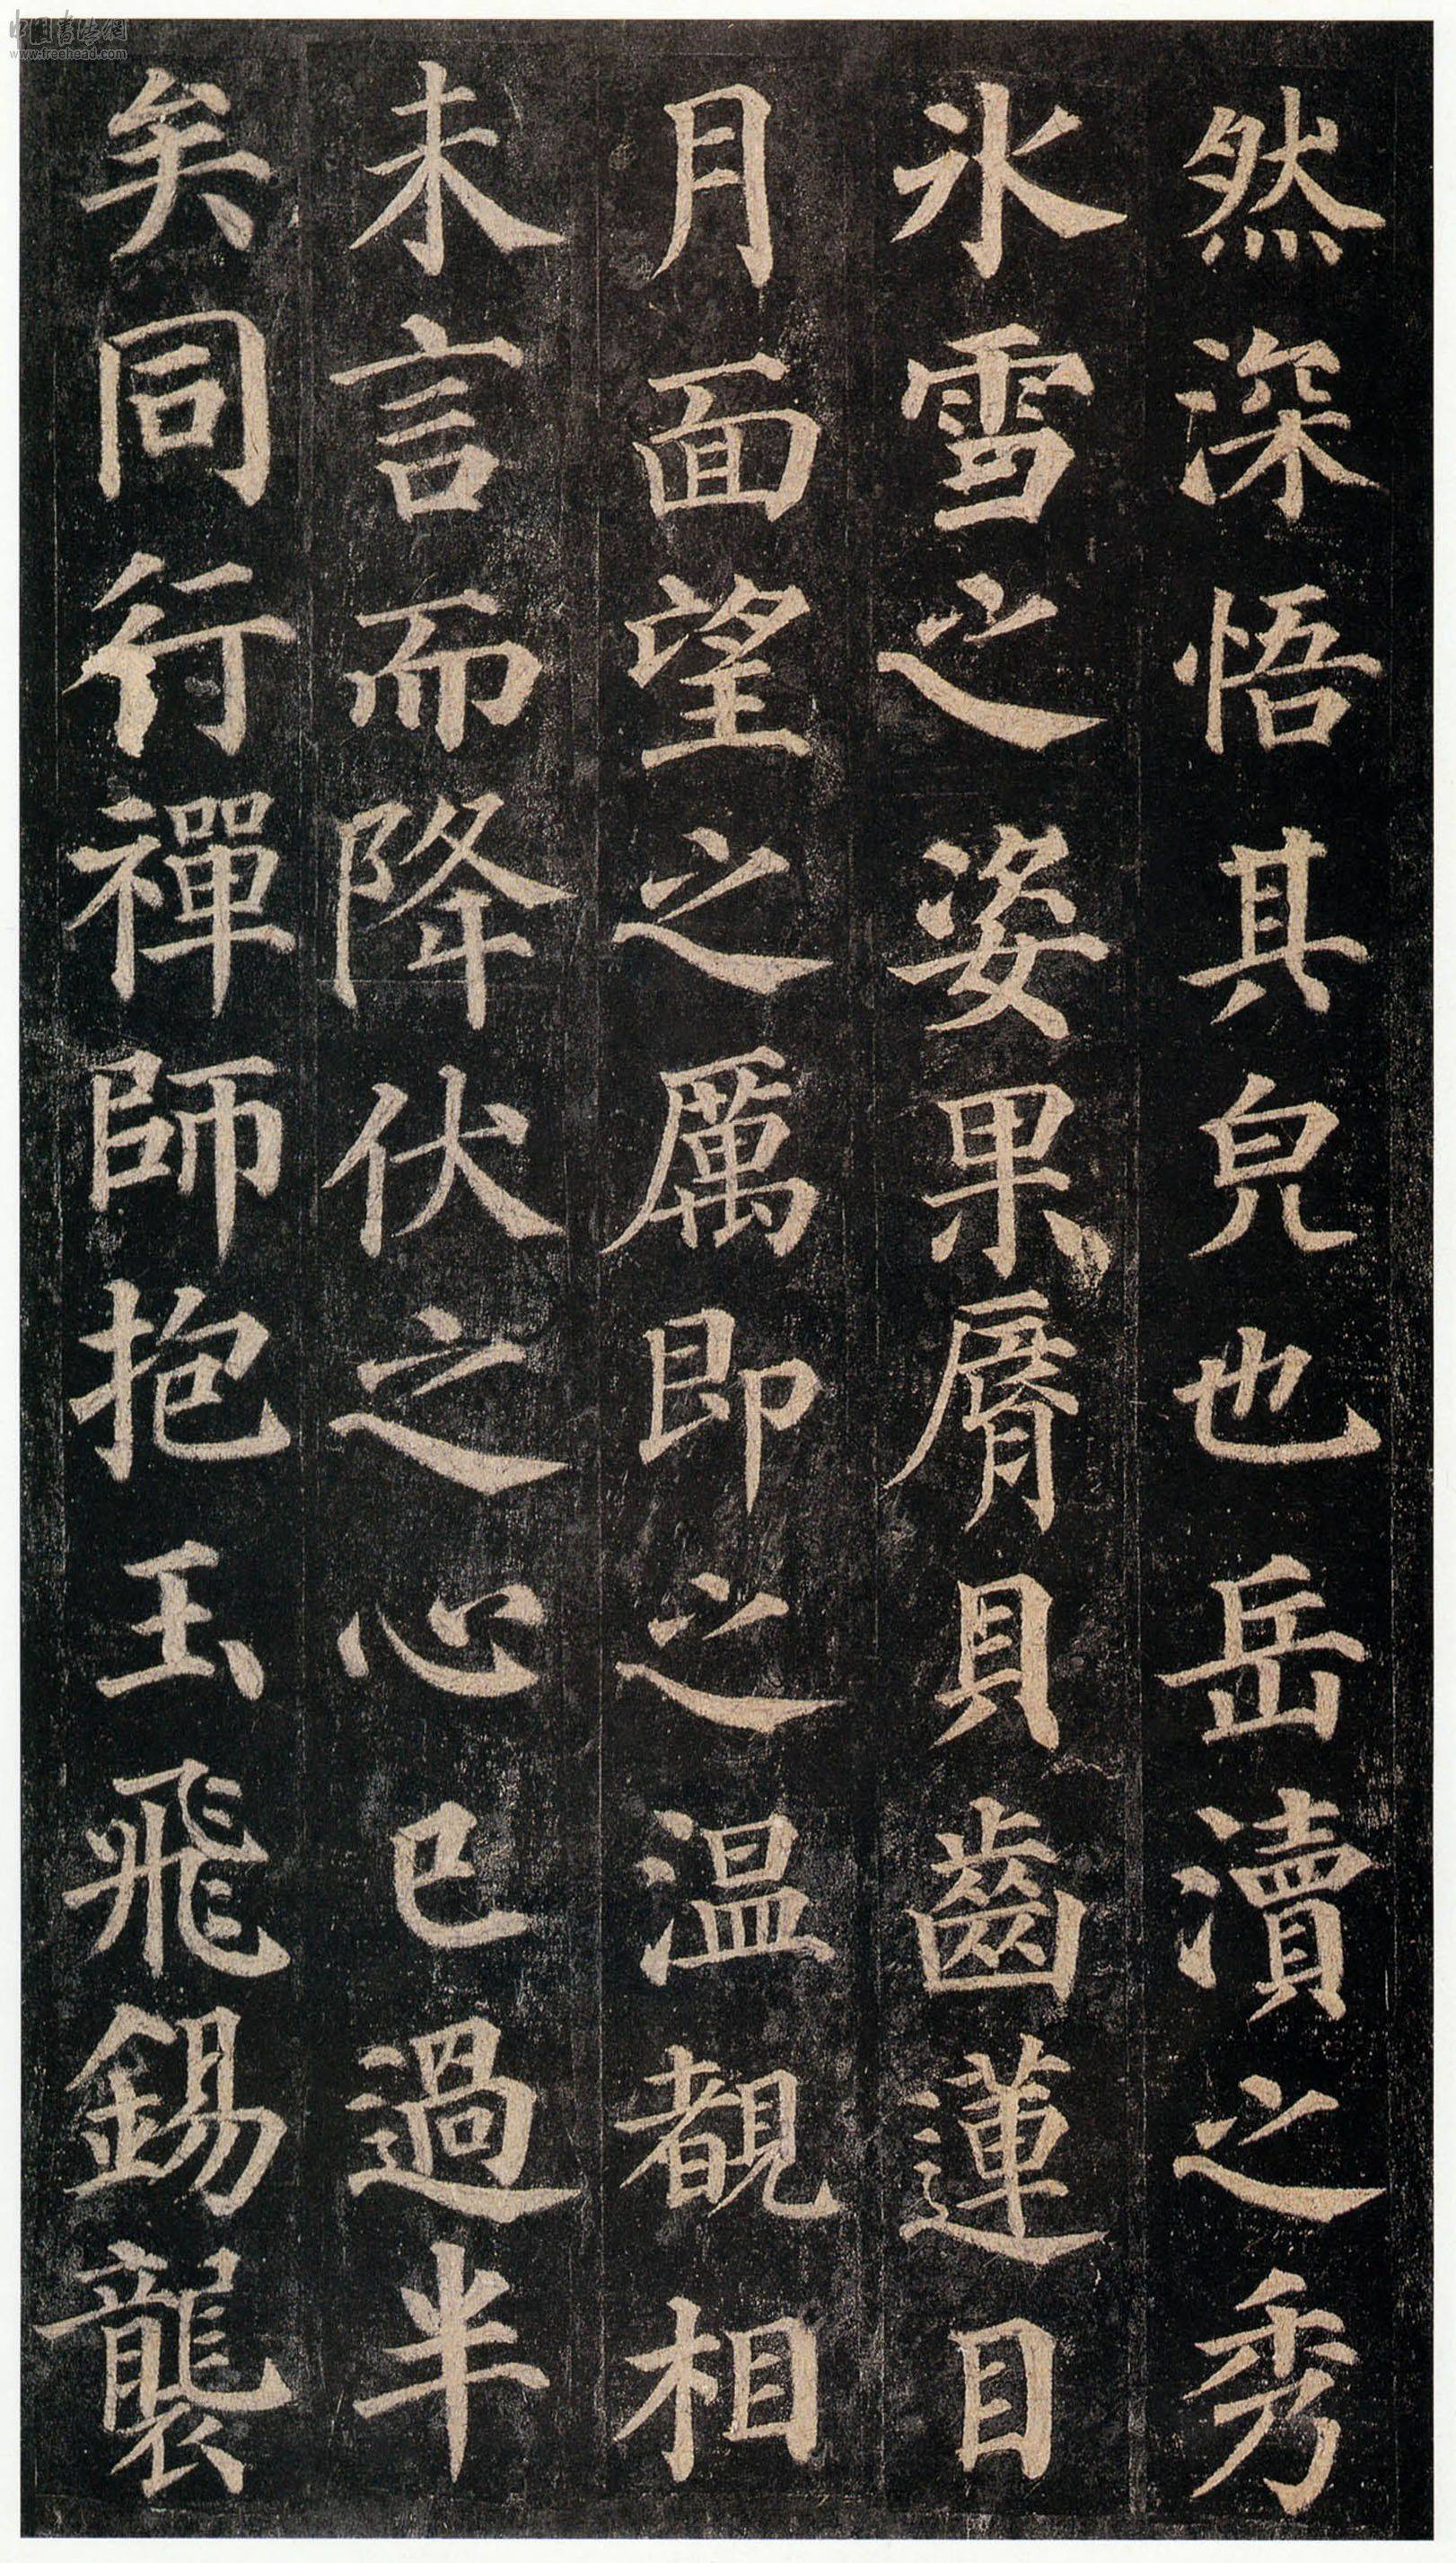 然深悟其皃也岳瀆之秀
氷雪之姿果脣貝齒蓮目
月面望之厲即之温覩相
未言而降伏之心已過半
矣同行禪師抱玉飛錫襲
中国书法網
www.freehead.com